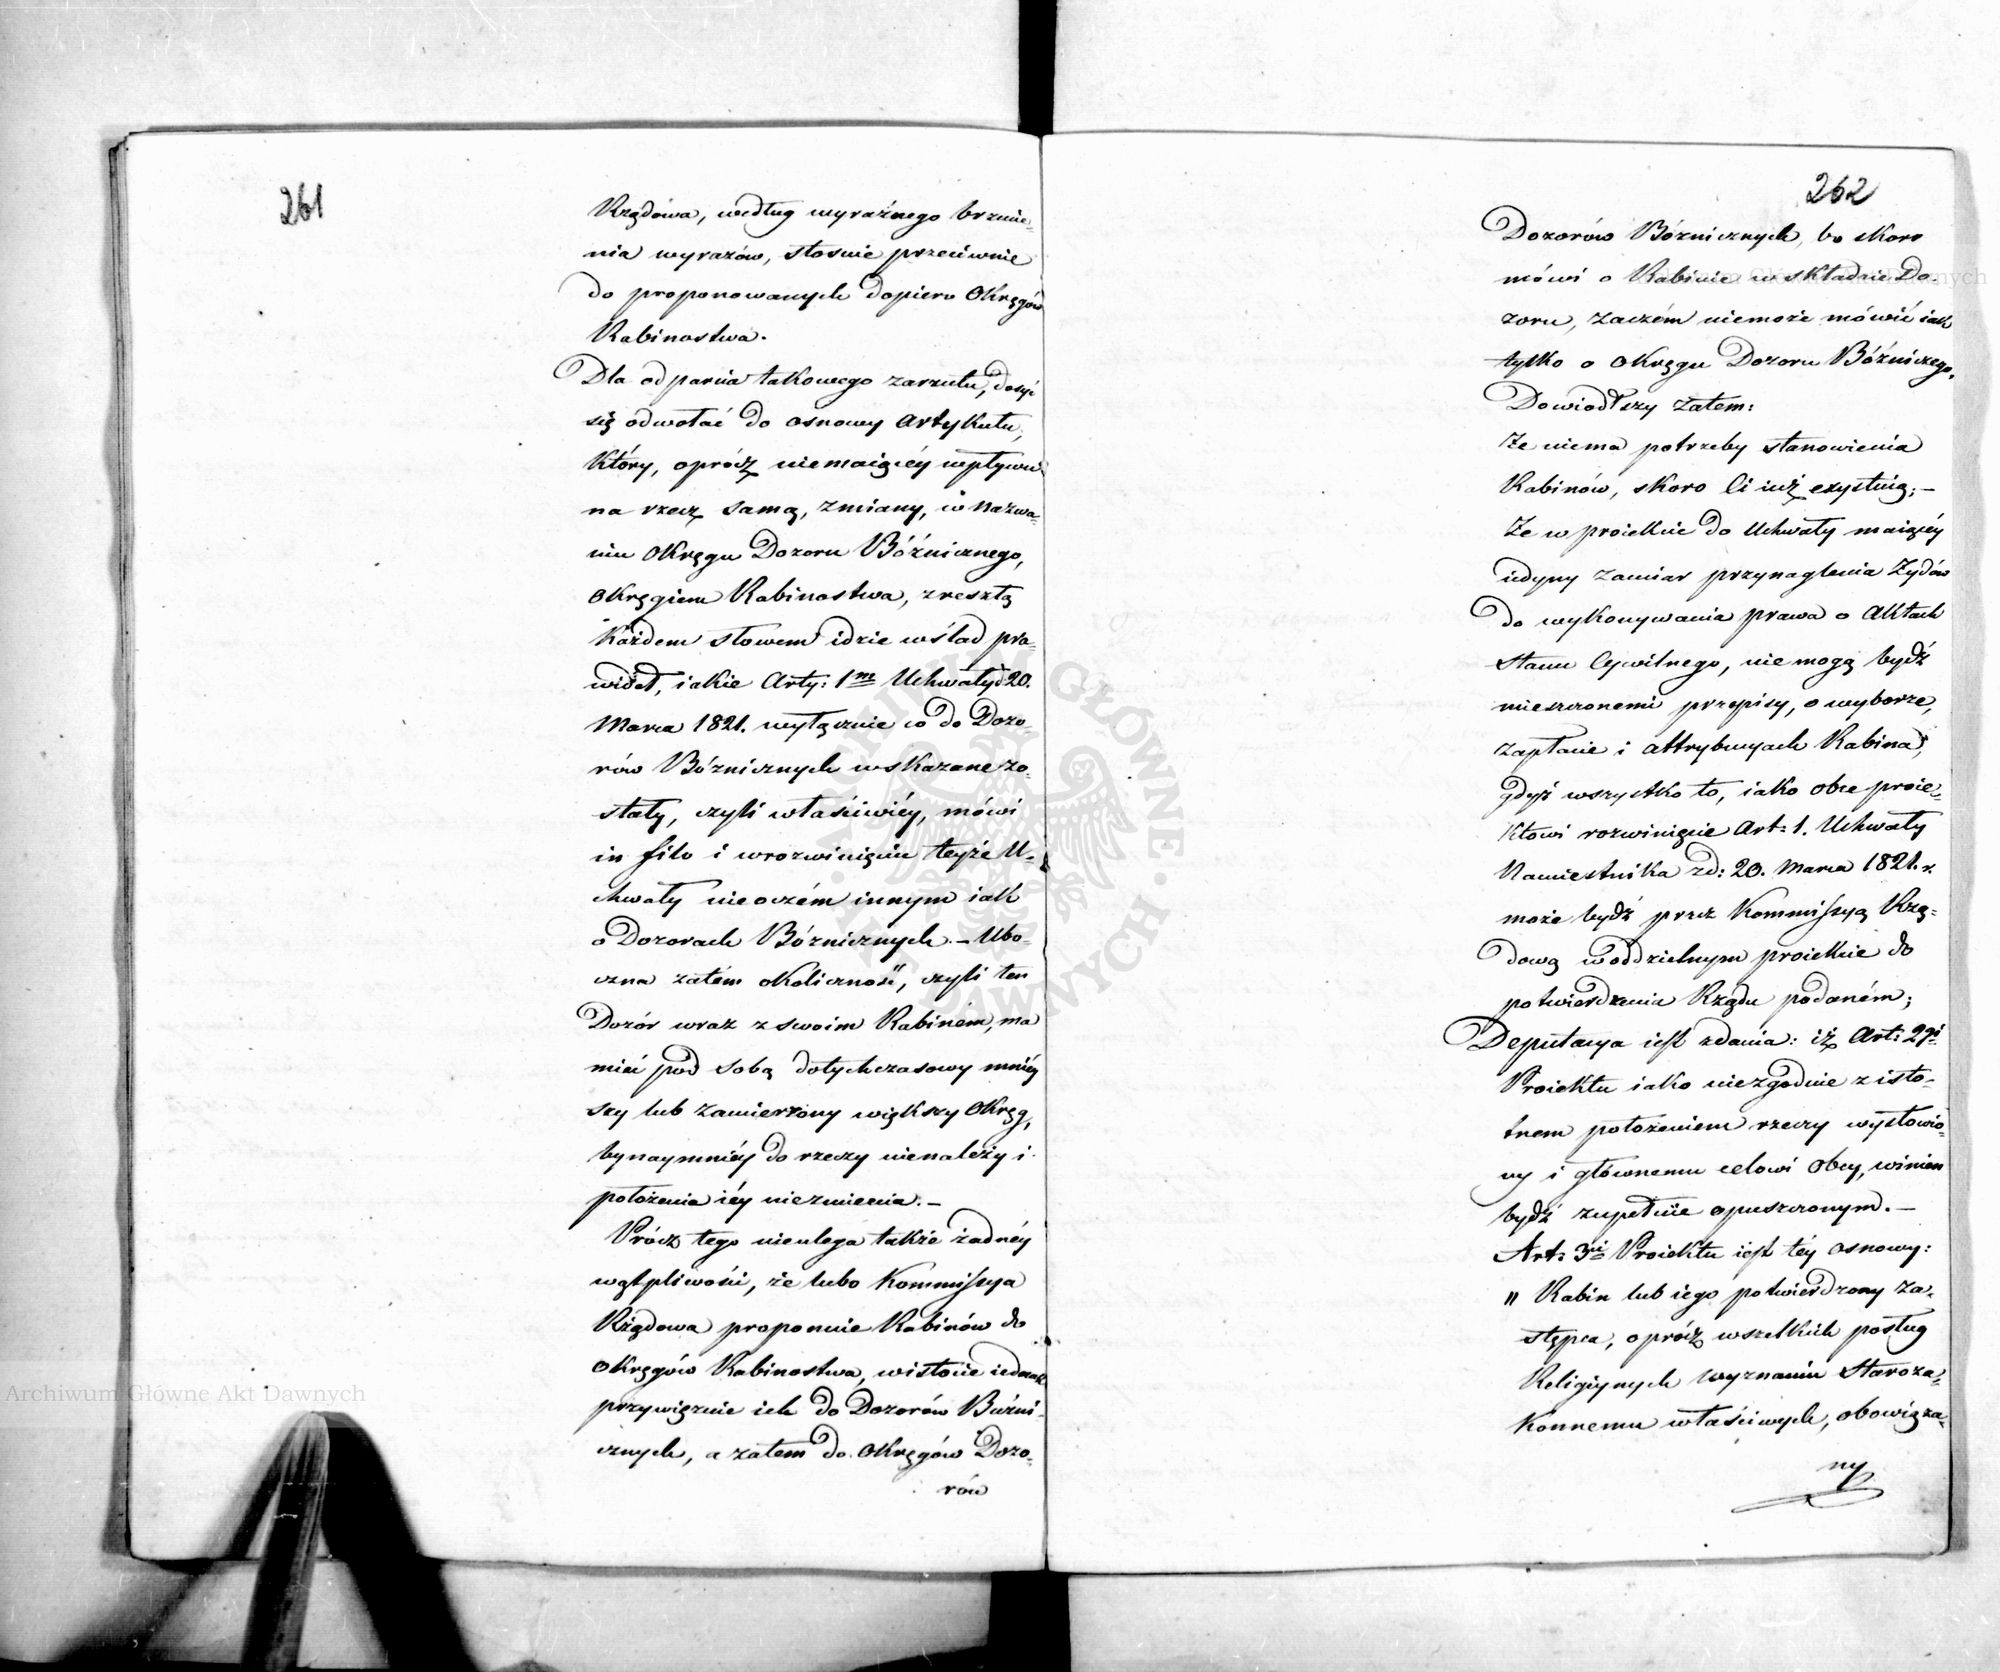 261
Rządowa, według wyraźnego brzmie-
nia wyrazów, stosuie przeciwnie
do proponowanych dopiero Okręgów
Rabinostwa.
Dla odparcia takowego zarzutu, dosyć
się odwołać do osnowy Artykułu,
który, oprócz niemaiącéy wpływu
na rzecz samą, zmiany, w nazwa-
niu Okręgu Dozoru Bóżnicznego,
Okręgiem Rabinostwa, zresztą
każdem słowem idzie w ślad pra-
wideł, iakie Arty: 1m Uchwały d 20.
Marca 1821. wyłącznie co do Dozo-
rów Bóżnicznych wskazane zo-
stały, czyli właściwiéy, mówi
in filo i w rozwinięciu teyże U-
chwały nie o czém innym iak
o Dozorach Bóżnicznych. – Ubo-
czna zatém okoliczność, czyli ten
Dozór wraz z swoim Rabinem, ma
mieć pod sobą dotychczasowy mniéy
szy lub zamierzony większy Okręg,
bynaymniéy do rzeczy nienależy i
położenia iéy niezmienia. –
Prócz tego nieulega także żadnéy
wątpliwości, że lubo Kommissya
Rządowa proponuie Rabinów do
Okręgów Rabinostwa, w istocie iednak
przywięzuie ich do Dozorów Bużni-
cznych, a zatem do Okręgów Dozo-
rów
262
Dozorów Bóżnicznych, bo skoro
mówi o Rabinie w składzie Do-
zoru, zaczém niemoże mówić iak
tylko o Okręgu Dozoru Bóżniczego.
Dowiodłszy zatem:
Że niema potrzeby stanowienia
Rabinów, skoro ci iuż exystuią; –
Że w proiekcie do Uchwały maiącéy
iedyny zamiar przynaglenia Żydów
do wykonywania prawa o Aktach
Stanu Cywilnego, nie mogą bydź
mieszczonemi przepisy, o wyborze,
zapłacie i attrybucyach Rabina,
gdyż wszystko to, iako obce proie-
ktowi rozwinięcie Art: 1. Uchwały
Namiestnika z d: 20. Marca 1821. r.
może bydź przez Kommissyą Rzą-
dową w oddzielnym proiekcie do
potwierdzenia Rządu podaném;
Deputacya iest zdania: iż Art: 2gi
Proiektu iako niezgodnie z isto-
tnem położeniem rzeczy wysłowio-
ny i głównemu celowi obcy, winien
bydź zupełnie opuszczonym. –
Art: 3ci Proiektu iest téy osnowy:
„ Rabin lub iego potwierdzony Za-
stępca, oprócz wszelkich posług
Religiynych wyznaniu Staroza-
konnemu właściwych, obowiąza-
ny
Archiwum Główne Akt Dawnych